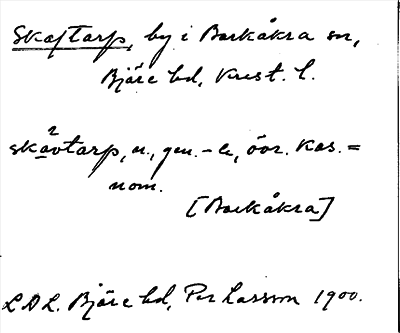 Skaftarp, by i Barkåkra sn,
Bjäre hd, Krist. l.
skavtarp, n., gen. -e, övr. kas. =
nom.
[Barkåkra]
L.D.L. Bjäre hd, Per Larsson 1900.